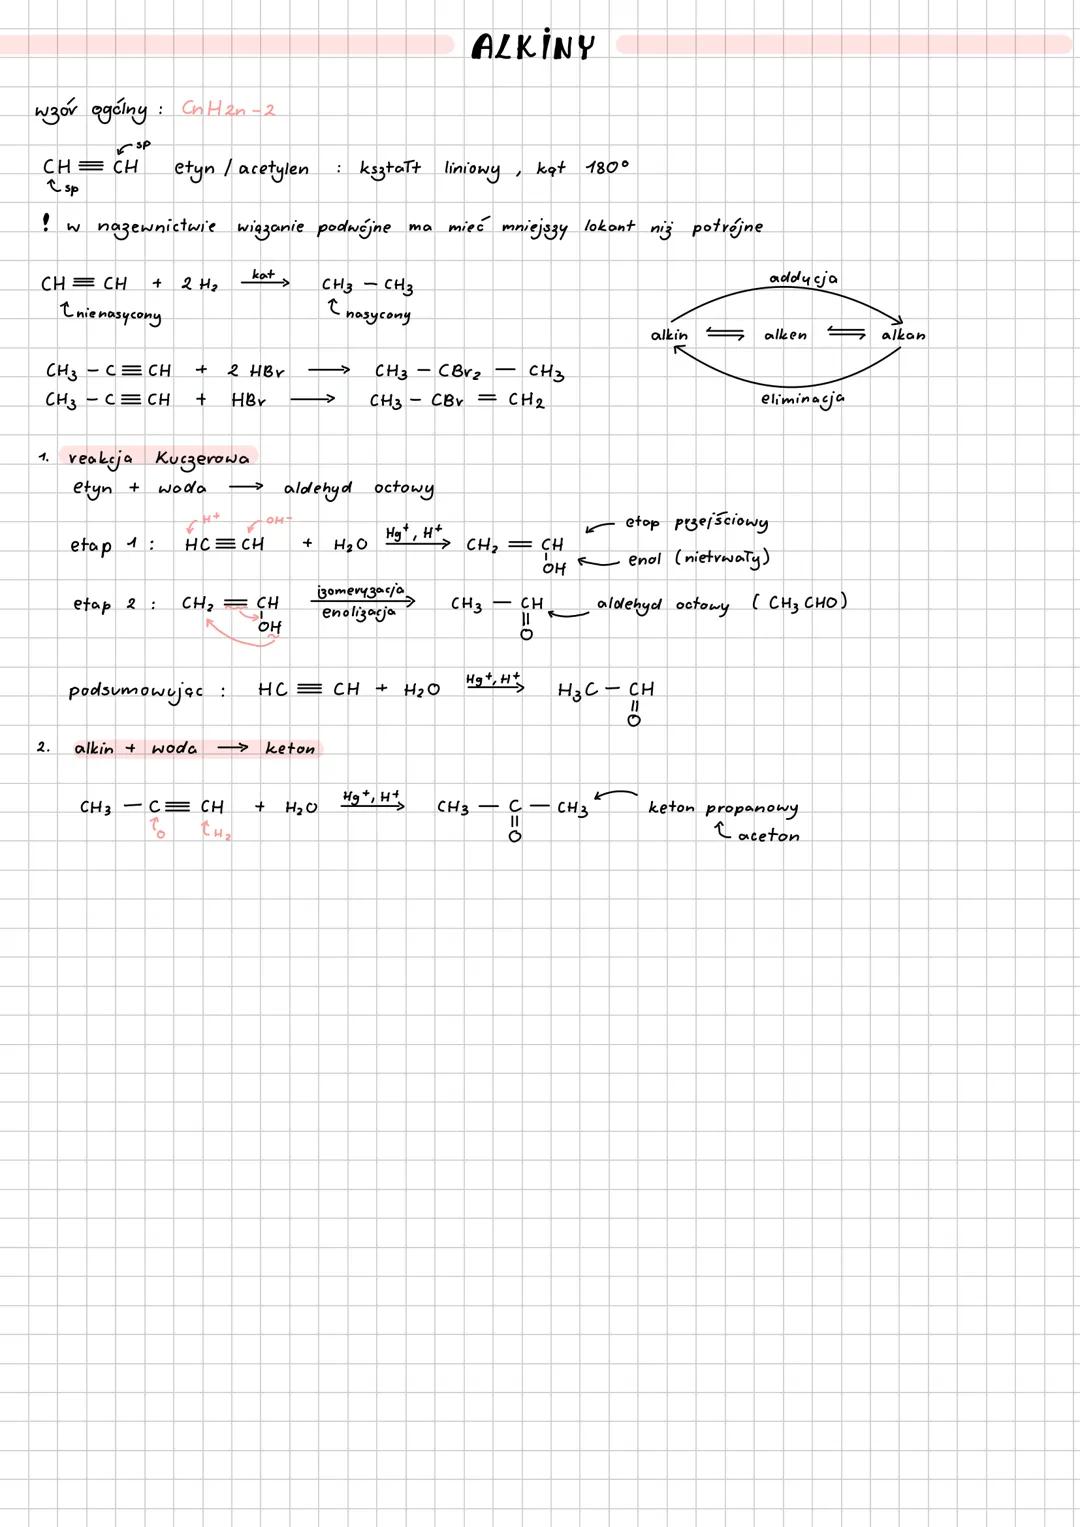 ALKINY
wzór ogólny : CnH2n-2
sp
CH ≡ CH etyn / acetylen : kształt liniowy , kąt 180°
sp
! w nazewnictwie wiązanie podwójne ma mieć mniejszy lokant niż potrójne
CH ≡ CH + 2 H₂ kat → CH₃ – CH₃
nienasycony nasycony
addycja
alkin ⇌ alken ⇌ alkan
eliminacja
CH₃ – C ≡ CH + 2 HBr → CH₃ – CBr₂ – CH₃
CH₃ – C ≡ CH + HBr → CH₃ – CBr = CH₂
1. reakcja Kuczerowa
etyn + woda → aldehyd octowy
H⁺ OH⁻
etap 1 : HC ≡ CH + H₂O Hg⁺, H⁺ → CH₂ = CH
OH
etap przejściowy
enol (nietrwały)
etap 2 : CH₂ = CH izomeryzacja → CH₃ – CH aldehyd octowy ( CH₃CHO )
OH enolizacja || O
podsumowując : HC ≡ CH + H₂O Hg⁺, H⁺ → H₃C – CH
|| O
2. alkin + woda → keton
CH₃ – C ≡ CH + H₂O Hg⁺, H⁺ → CH₃ – C – CH₃ keton propanowy
O H₂ || O aceton